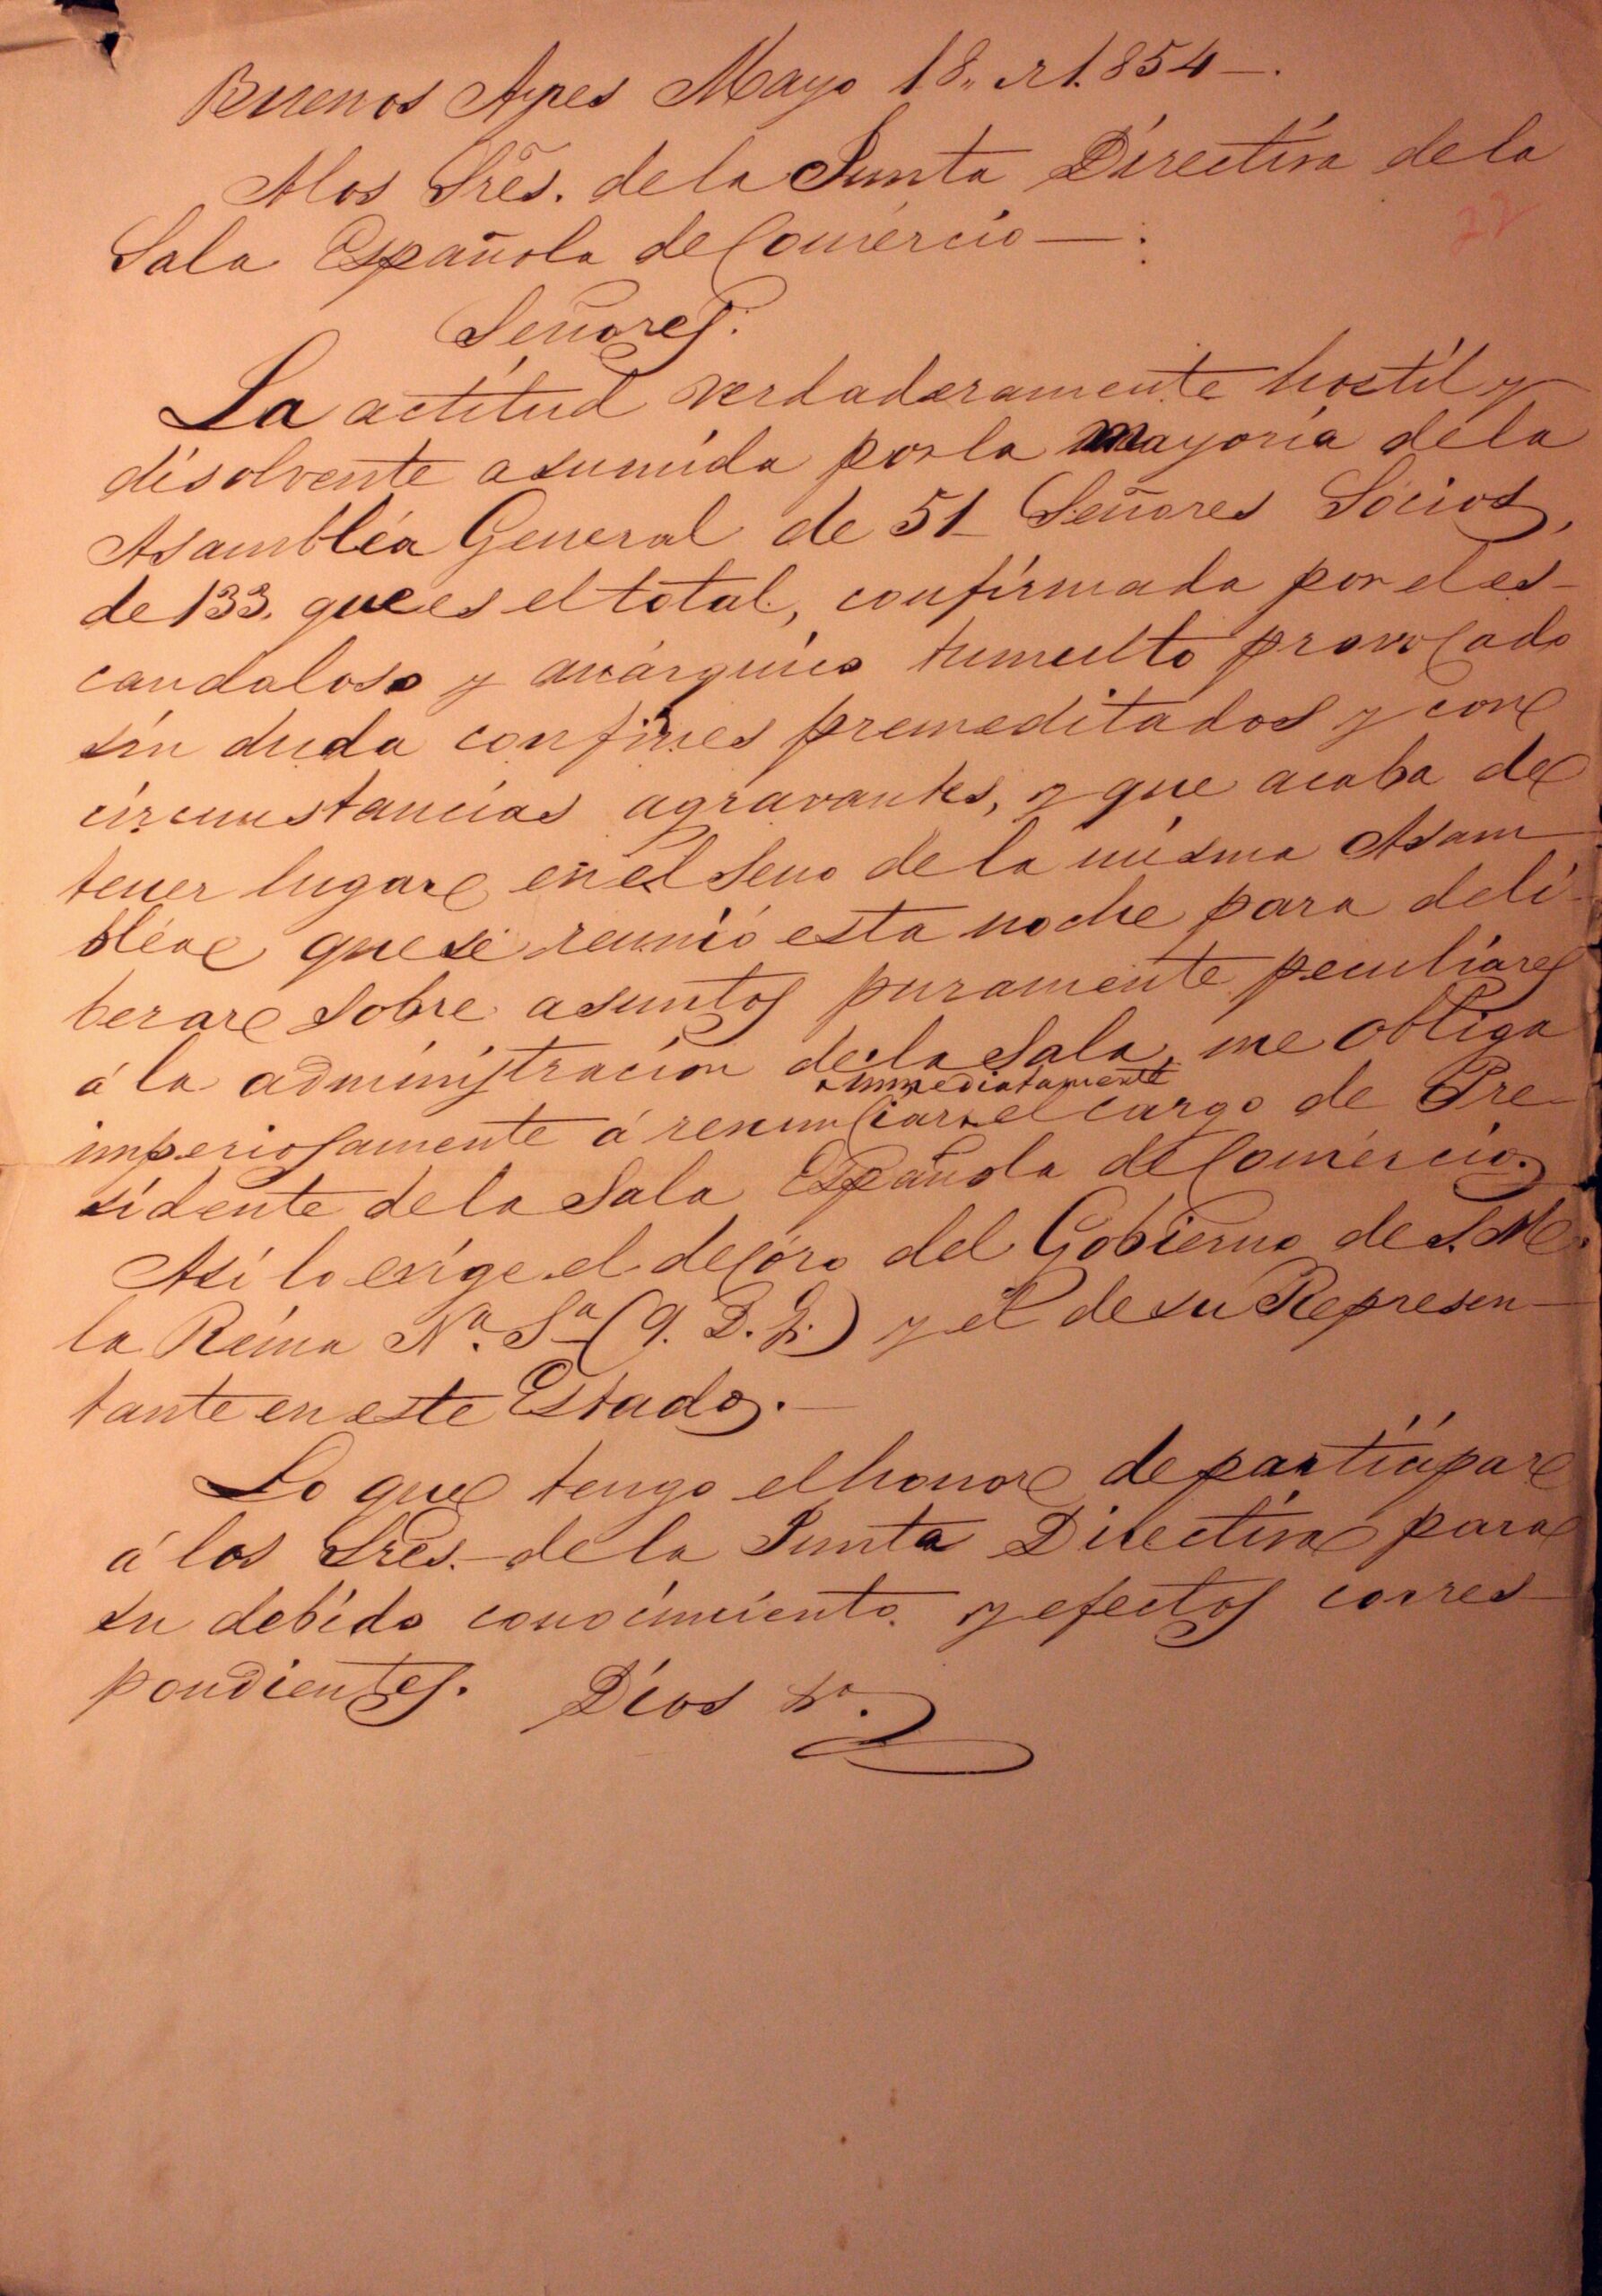 Buenos Ayres Mayo 18,, de 1.854—.
A los Sres. de la Junta Directiva de la
22
Sala Española de Comércio—:
Señores:
La actitud verdaderamente hostil y
disolvente asumida por la mayoria de la
Asambléa General de 51 Señores Sócios,
de 133. que es el total, confirmada por el es-
candaloso y anárquico tumulto provocado
sin duda con fines premeditados y con
circunstancias agravantes, y que acaba de
tener lugar en el seno de la misma Asam-
bléa que se reunió esta noche para deli-
berar sobre asuntos puramente peculiares
á la administracion de la Sala, me obliga
immediatamente
imperiosamente á renunciar el cargo de Pre-
sidente de la Sala Española de Comércio.
Asi lo exige el decóro del Gobierno de S. M.
la Reina Na. Sa (q. D. g.) y el de su Represen-
tante en este Estado.—
Lo que tengo el honor de participar
á los Sres. de la Junta Directiva para
su debido conocimiento y efectos corres-
pondientes. Dios